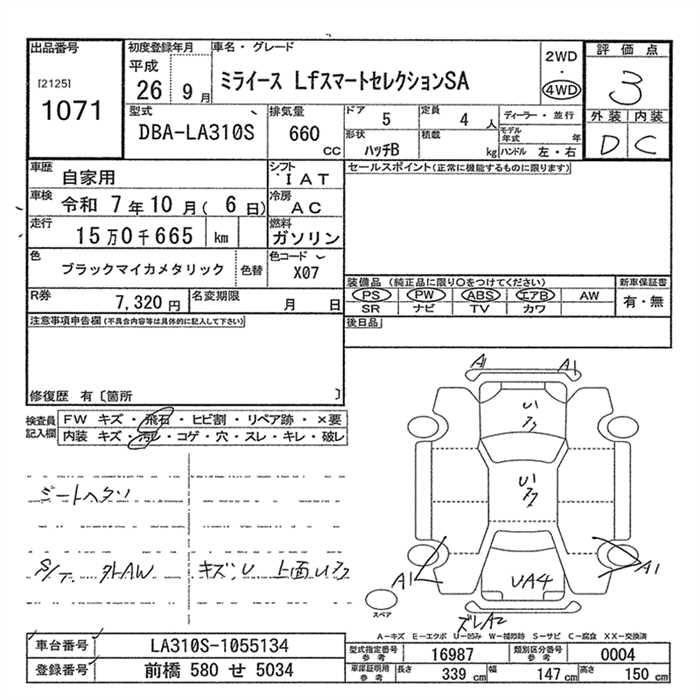 出品番号
[2125]
1071
初度登録年月
平成
26 9月
車名・グレード
ミライース LfスマートセレクションSA
2WD
・
4WD
評価点
3
外装 内装
D C
型式
DBA-LA310S
排気量
660
CC
ドア
5
定員
4 人
形状
ハッチB
積載
kg
ディーラー・並行
モデル年式 年
ハンドル 左・右
車歴
自家用
シフト
IAT
車検
令和 7年10月(6日)
冷房
AC
走行
15万0千665 km
燃料
ガソリン
色
ブラックマイカメタリック
色替
色コード
X07
R券
7,320円
名変期限
月 日
セールスポイント(正常に機能するものに限ります)
装備品(純正品に限り○をつけてください)
PS PW ABS エアB AW
SR ナビ TV カワ
新車保証書
有・無
後日品
注意事項申告欄(不具合内容等は具体的に記入して下さい)
修復歴 有〔箇所 〕
検査員記入欄
FW キズ・飛石・ヒビ割・リペア跡・×要
内装 キズ・汚レ・コゲ・穴・スレ・キレ・破レ
シートヘタリ
S/T. 外AW
キズ、U 上面
A1 A1
A1
UA4
A1
ズレA2
スペア
A―キズ E―エクボ U―凹み W―補修跡 S―サビ C―腐食 XX―交換済
車台番号
LA310S-1055134
登録番号
前橋 580 せ 5034
型式指定番号 参考
16987
類別区分番号 参考
0004
車庫証明用 参考
長さ 339 cm
幅 147 cm
高さ 150 cm